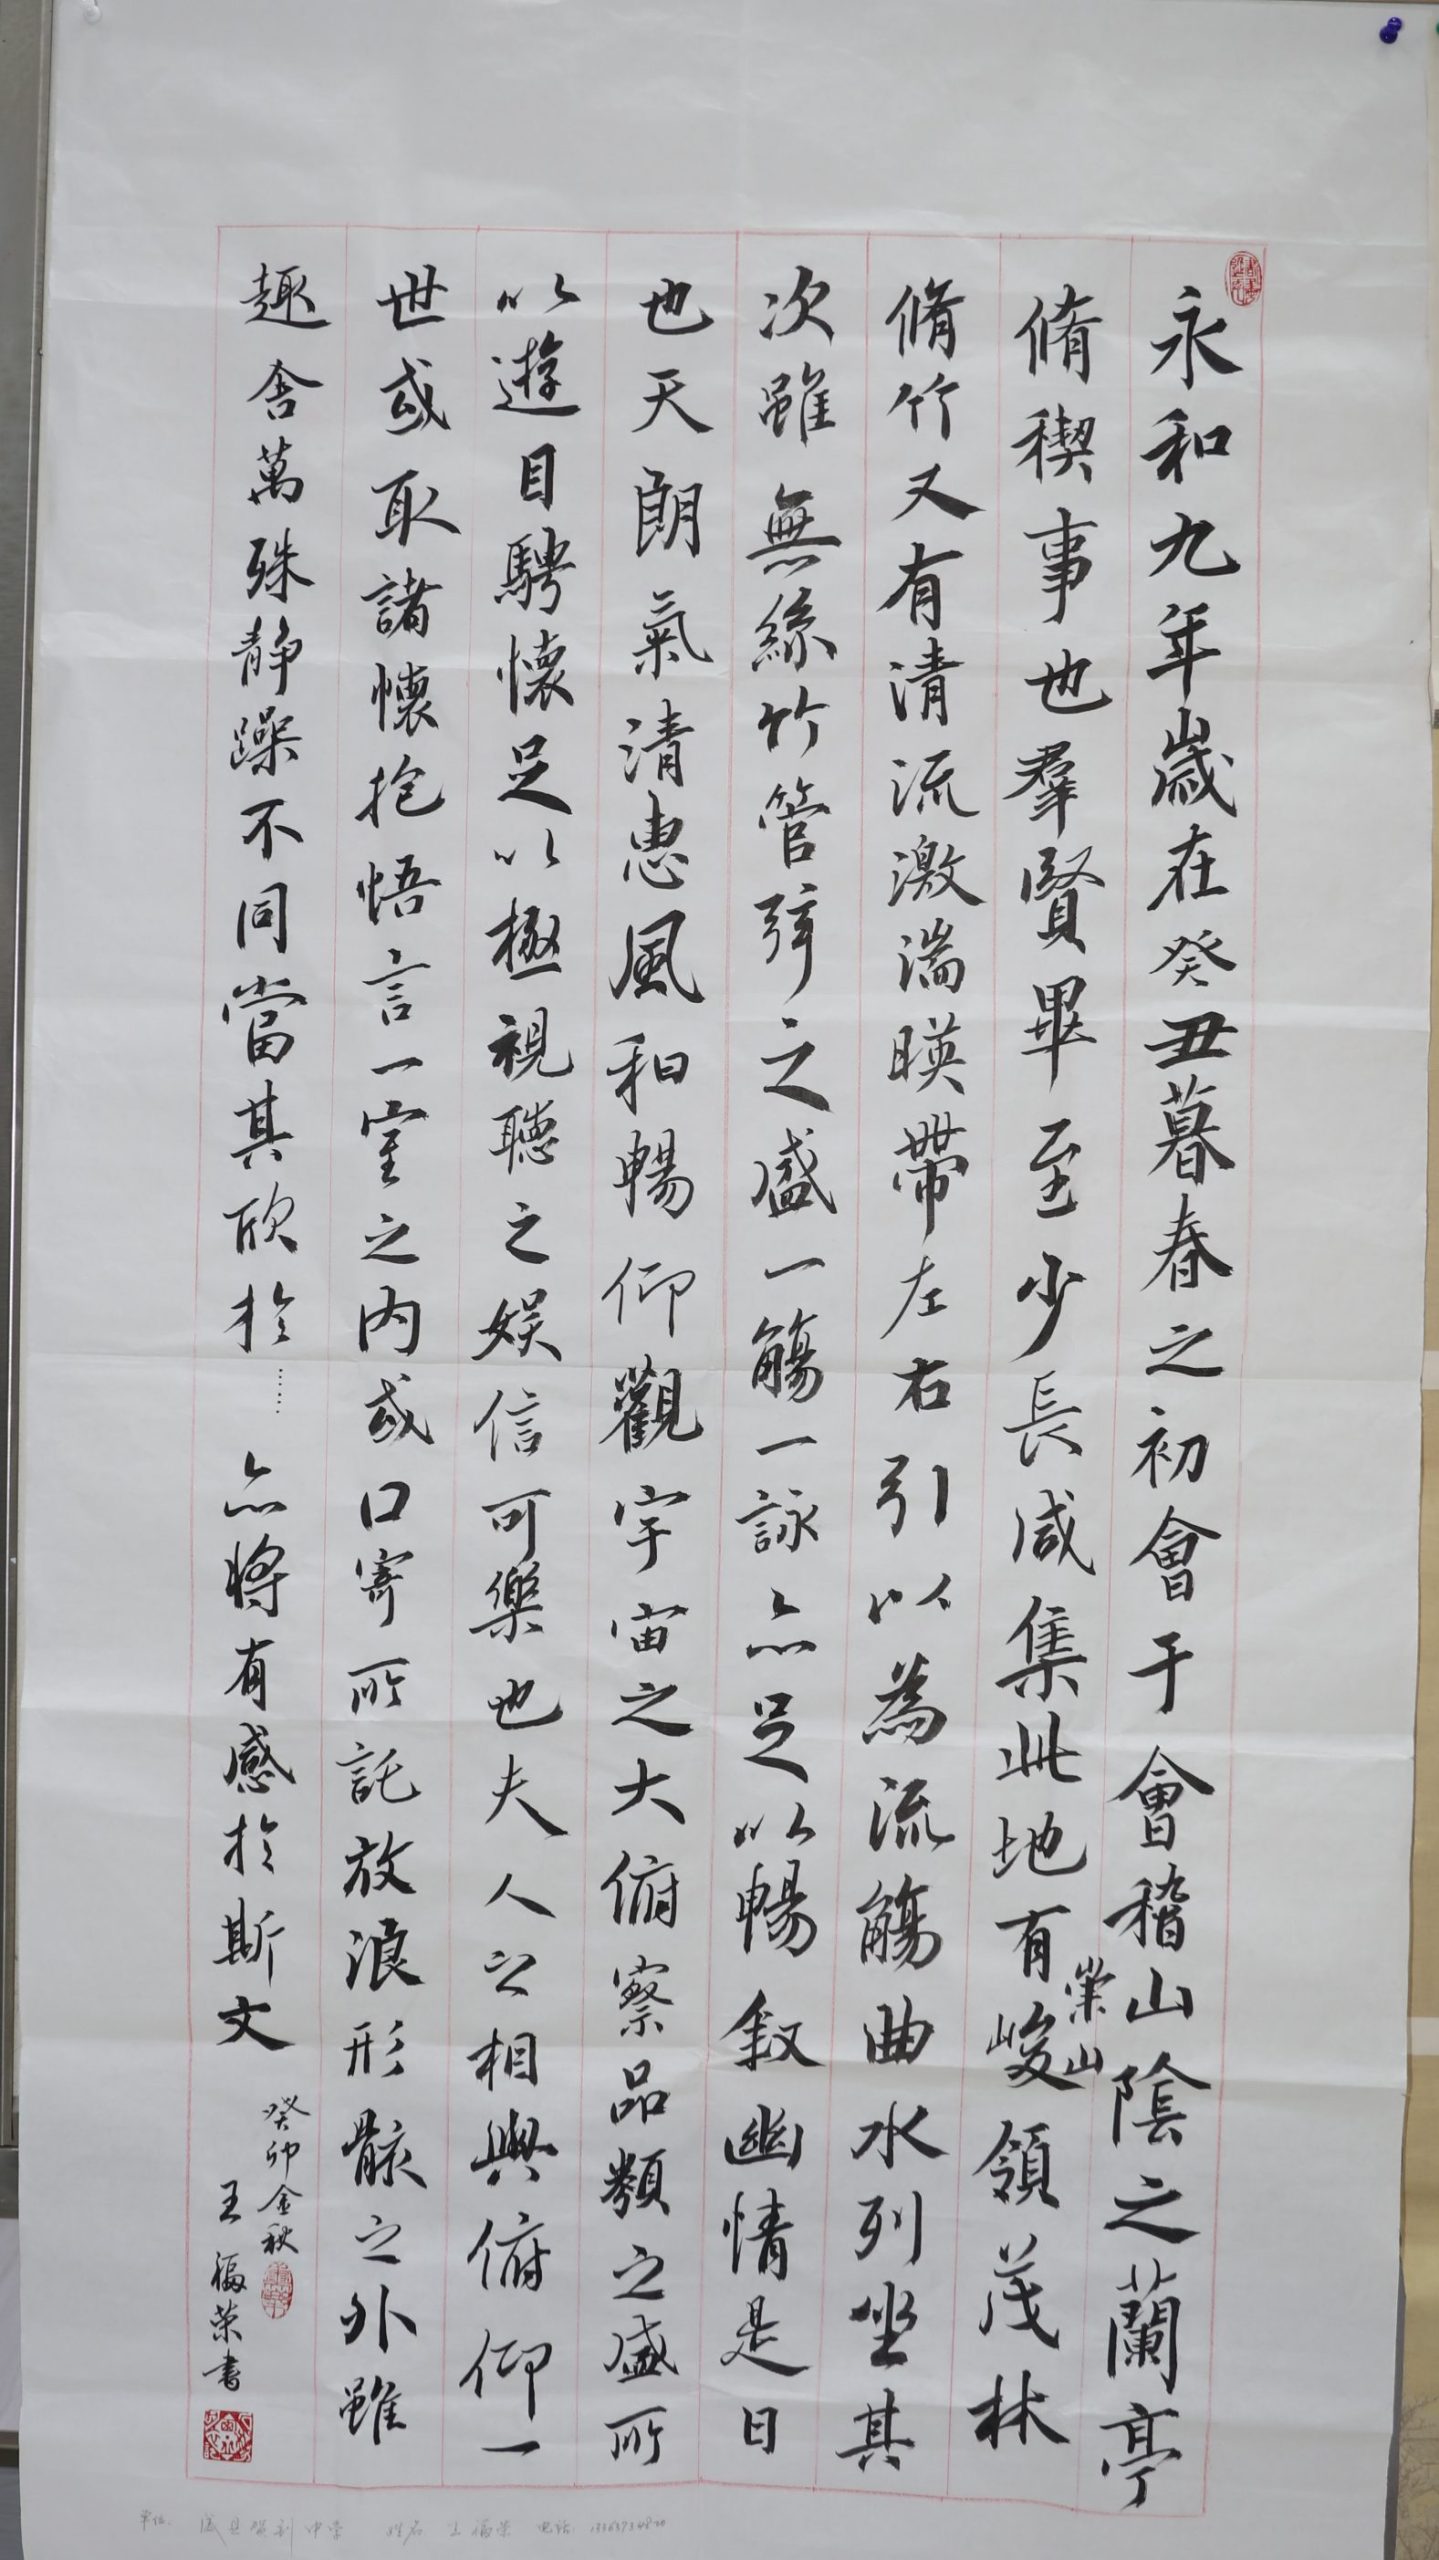 永和九年歲在癸丑暮春之初會于會稽山陰之蘭亭
脩稧事也羣賢畢至少長咸集此地有峻領茂林
崇山
脩竹又有清流激湍暎帶左右引以為流觴曲水列坐其
次雖無絲竹管弦之盛一觴一詠亦足以暢敘幽情是日
也天朗氣清惠風和暢仰觀宇宙之大俯察品類之盛所
以遊目騁懷足以極視聽之娛信可樂也夫人之相與俯仰一
世或取諸懷抱悟言一室之内或口寄所託放浪形骸之外雖
趣舎萬殊静躁不同當其欣於……亦將有感於斯文
癸卯金秋
王福荣書
单位: 中学 姓名 王福荣 电话: